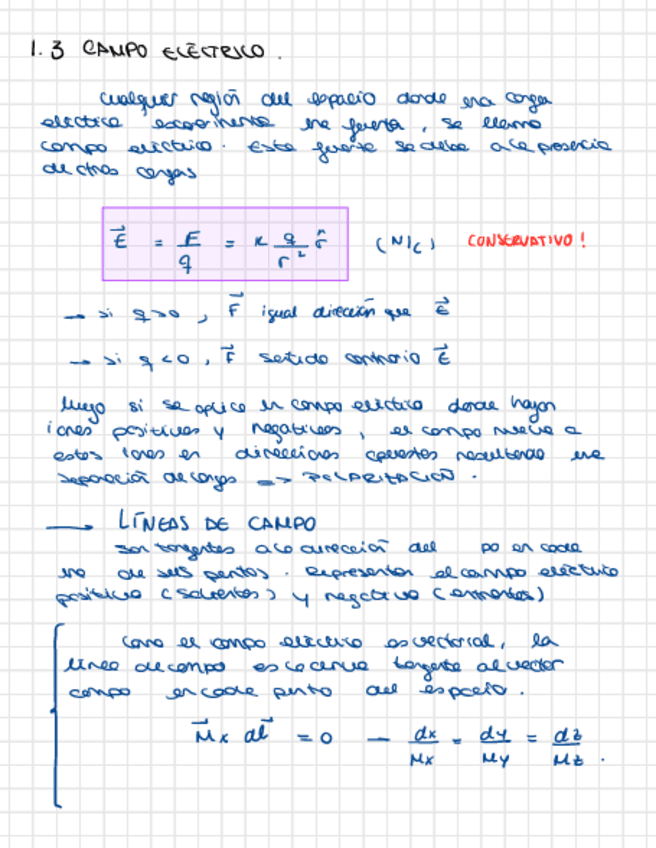 1.3 CAMPO ELÉCTRICO.
cualquier región del espacio donde una carga
eléctrica experimenta una fuerza, se llama
campo eléctrico. Esta fuerza se debe a la presencia
de otras cargas
E⃗ = F/q = K q/r² r̂ (N/C) CONSERVATIVO!
→ si q>0, F⃗ igual dirección que E⃗
→ si q<0, F⃗ sentido contrario E⃗
luego si se aplica un campo eléctrico donde hayan
iones positivos y negativos, el campo mueve a
estos iones en direcciones opuestas resultando una
separación de cargas => POLARIZACIÓN.
→ LÍNEAS DE CAMPO
son tangentes a la dirección del po en cada
uno de sus puntos. Representan el campo eléctrico
positivo (salientes) y negativo (entrantes)
Como el campo eléctrico es vectorial, la
línea de campo es la curva tangente al vector
campo en cada punto del espacio.
μ⃗ x dl⃗ = 0 — dx/μx = dy/μy = dz/μz.